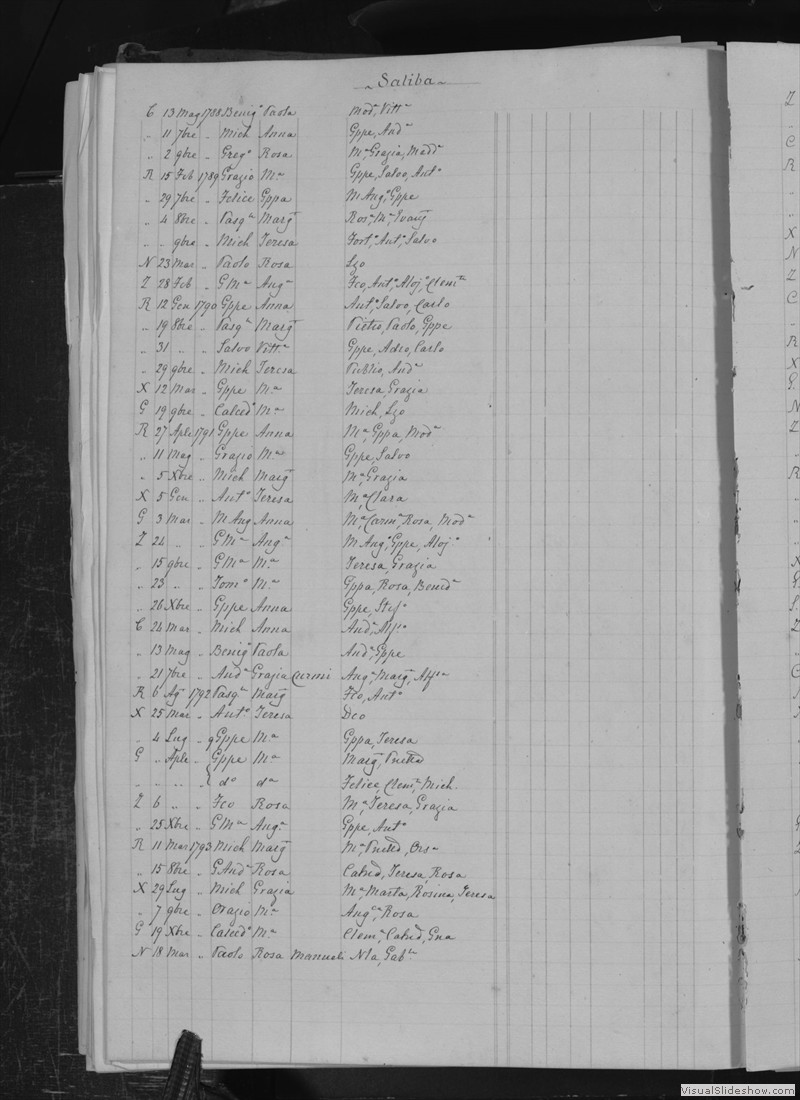 Saliba
C 13 Mag 1788 Benigo Paola Moda, Vitta
„ 11 7bre „ Mich Anna Gppe, Anda
„ 2 9bre „ Grego Rosa Ma Grazia, Madda
R 15 Feb 1789 Grazio Ma Gppe, Salvo, Anto
„ 29 7bre „ Felice Gppa M Ango, Gppe
„ 4 8bre „ Pasqle Marg Rosa, Ma, Evang
„ „ 9bre „ Mich Teresa Forto, Anto, Salvo
N 23 Mar „ Paolo Rosa Lzo
Z 28 Feb „ G Ma Anga Fco, Anto, Aloj, Clemte
R 12 Gen 1790 Gppe Anna Anto, Salvo, Carlo
„ 19 8bre „ Pasqle Marg Pietro, Paolo, Gppe
„ 31 „ „ Salvo Vitta Gppe, Adeo, Carlo
„ 29 9bre „ Mich Teresa Publio, Anda
X 12 Mar „ Gppe Ma Teresa, Grazia
G 19 9bre „ Calcedo Ma Mich, Lzo
R 27 Aple 1791 Gppe Anna Ma, Gppa, Moda
„ 11 Mag „ Grazio Ma Gppe, Salvo
„ 5 Xbre „ Mich Marg Ma, Grazia
X 5 Gen „ Anto Teresa Ma, Clara
G 3 Mar „ M Ang Anna Ma, Carma, Rosa, Moda
Z 24 „ „ G Ma Anga M Ango, Gppe, Alojo
„ 15 9bre „ G Ma Ma Teresa, Grazia
„ 23 „ „ Tomo Ma Gppa, Rosa, Beneda
„ 26 Xbre „ Gppe Anna Gppe, Stefo
C 24 Mar „ Mich Anna Anda, Alfa
„ 13 Mag „ Benigo Paola Anda, Gppe
„ 21 7bre „ Anda Grazia Curmi Anga, Marg, Alfsa
R 6 Ag 1792 Pasqle Marg Fco, Anto
X 25 Mar „ Anto Teresa Dco
„ 4 Lug „ Gppe Ma Gppa, Teresa
G „ Aple „ Gppe Ma Marg,
„ „ „ „ do da Felice, Clema, Mich
Z 6 „ „ Fco Rosa Ma, Teresa, Grazia
„ 25 Xbre „ G Ma Anga Gppe, Anto
R 11 Mar 1793 Mich Marg Ma, Orsa
„ 15 8bre „ G Anda Rosa Catud, Teresa, Rosa
X 29 Lug „ Mich Grazia Ma, Marta, Rosina, Teresa
„ 7 9bre „ Orazio Ma Angca, Rosa
G 19 Xbre „ Calcedo Ma Clema, Catud, Gna
N 18 Mar „ Paolo Rosa Manueli Nla, Gable
VisualSlideshow.com